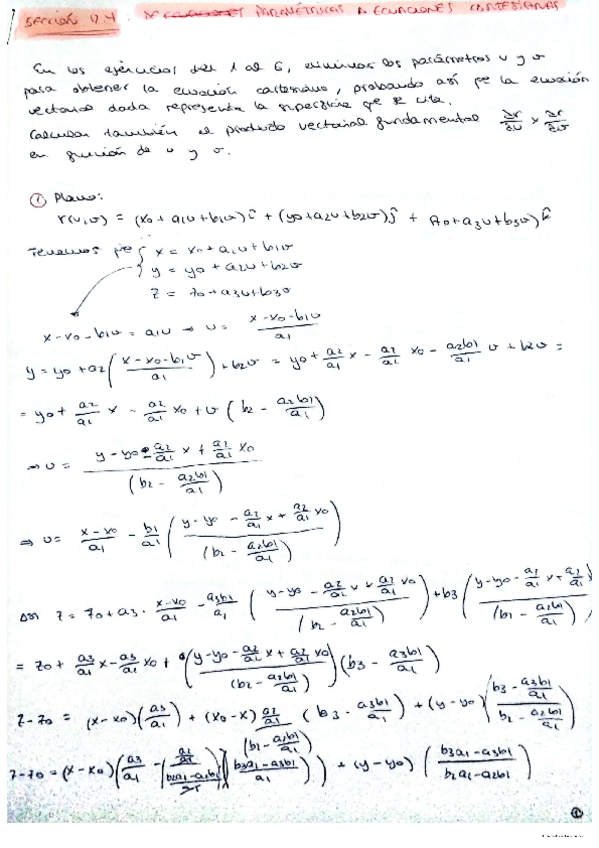 SECCIÓN 12.4 DE ECUACIONES PARAMÉTRICAS A ECUACIONES CARTESIANAS
En los ejercicios del 1 al 6, eliminar los parámetros u y v
para obtener la ecuación cartesiana, probando así que la ecuación
vectorial dada representa la superficie que se cita.
Calcular también el producto vectorial fundamental ∂r/∂u × ∂r/∂v
en función de u y v.
① Plano:
r(u,v) = (x0 + a1u + b1v)î + (y0 + a2u + b2v)ĵ + (z0 + a3u + b3v)k̂
Tenemos que { x = x0 + a1u + b1v
y = y0 + a2u + b2v
z = z0 + a3u + b3v
x - x0 - b1v = a1u ⇒ u = (x - x0 - b1v)/a1
y = y0 + a2((x - x0 - b1v)/a1) + b2v = y0 + a2/a1 x - a2/a1 x0 - a2b1/a1 v + b2v =
= y0 + a2/a1 x - a2/a1 x0 + v (b2 - a2b1/a1)
⇒ v = (y - y0 - a2/a1 x + a2/a1 x0)/(b2 - a2b1/a1)
⇒ u = (x - x0)/a1 - b1/a1 ((y - y0 - a2/a1 x + a2/a1 x0)/(b2 - a2b1/a1))
z = z0 + a3 · (x - x0)/a1 - a3b1/a1 ((y - y0 - a2/a1 x + a2/a1 x0)/(b2 - a2b1/a1)) + b3 ((y - y0 - a2/a1 x + a2/a1 x0)/(b2 - a2b1/a1))
= z0 + a3/a1 x - a3/a1 x0 + ((y - y0 - a2/a1 x + a2/a1 x0)/(b2 - a2b1/a1)) (b3 - a3b1/a1)
z - z0 = (x - x0)(a3/a1) + (x0 - x) (a2/a1)/(b2 - a2b1/a1) (b3 - a3b1/a1) + (y - y0)((b3 - a3b1/a1)/(b2 - a2b1/a1))
z - z0 = (x - x0)(a3/a1 - ((a2/a1)/((b2a1 - a2b1)/a1))((b3a1 - a3b1)/a1)) + (y - y0) ((b3a1 - a3b1)/(b2a1 - a2b1))
①